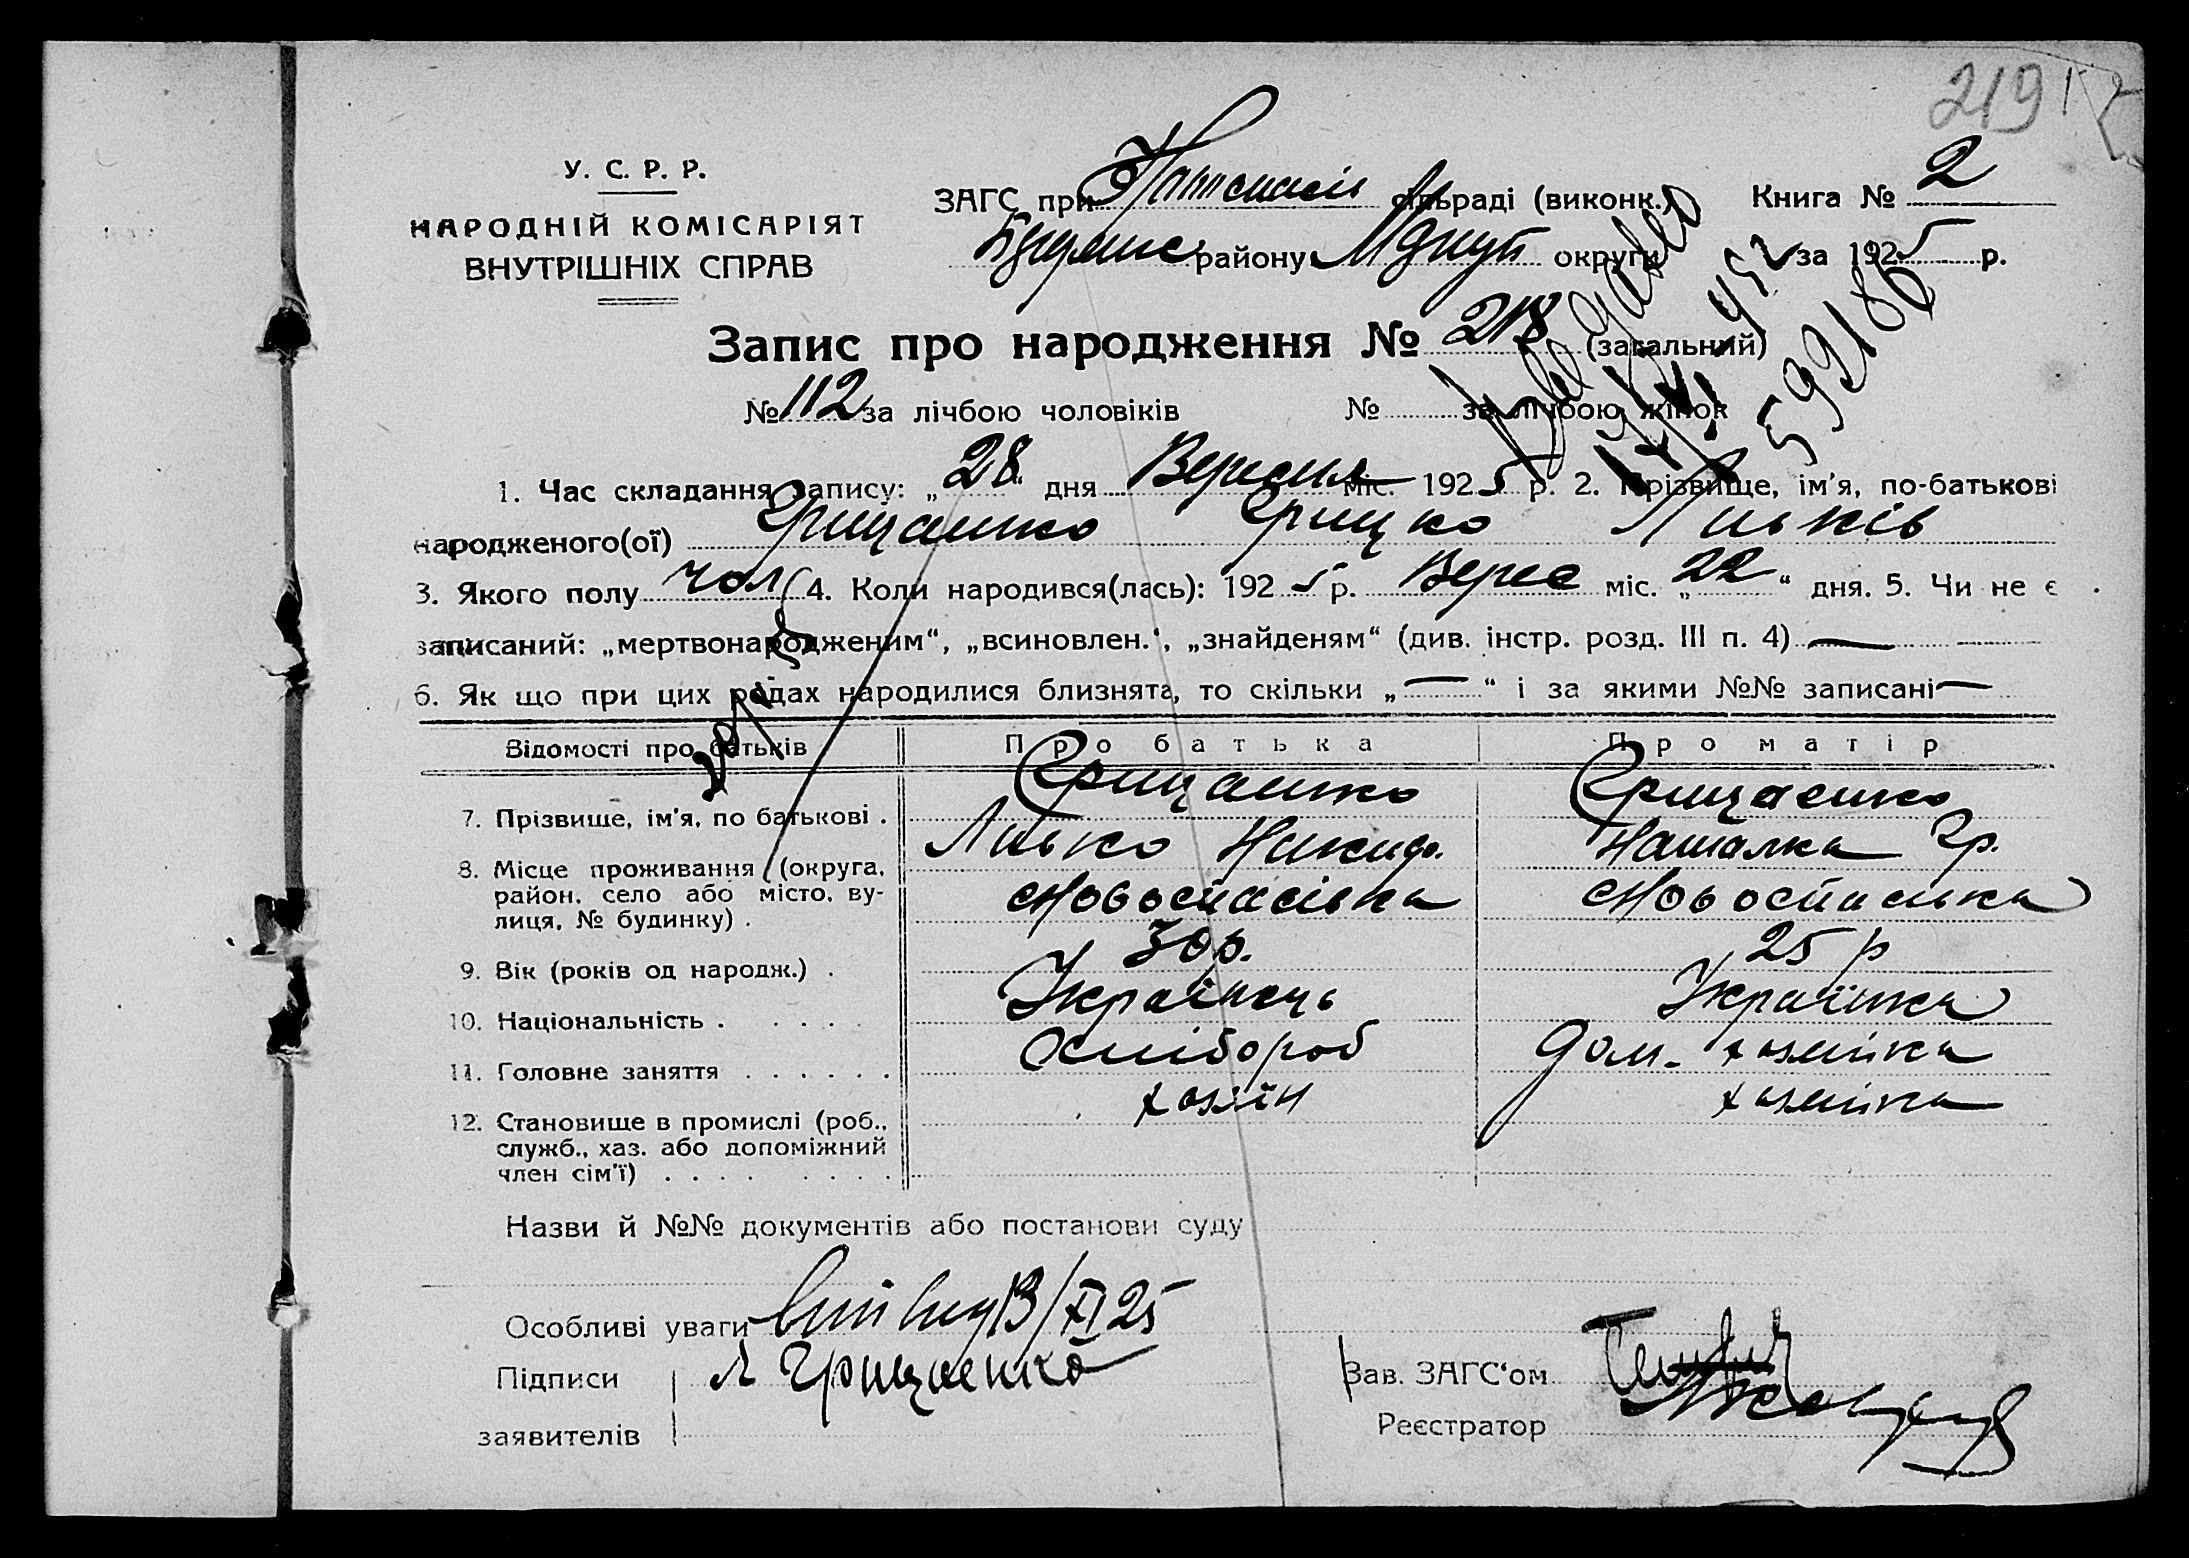 219
У. С. Р. Р.
НАРОДНІЙ КОМІСАРІЯТ
ВНУТРІШНІХ СПРАВ
ЗАГС при сільраді (виконк.) Книга № 2
району округи за 1925 р.
Запис про народження № 218 (загальний)
№ 112 за лічбою чоловіків № за лічбою жінок
592186
1. Час складання запису: „28“ дня Вересня міс. 1925 р. 2. Прізвище, ім'я, по-батькові
народженого(ої) Грицаенко Грицко Пиьків
3. Якого полу чол 4. Коли народився(лась): 1925 р. Верес міс. „22“ дня. 5. Чи не є
записаний: „мертвонародженим“, „всиновлен.“, „знайденям“ (див. інстр. розд. III п. 4) —
6. Як що при цих родах народилися близнята, то скільки „—“ і за якими №№ записані —
Відомості про батьків Про батька Про матір
7. Прізвище, ім'я, по батькові . Грицаенко Грицаенко
Никиф. Наталка Гр.
8. Місце проживання (округа, район, село або місто, вулиця, № будинку) . Новоспасівка Новоспаська
9. Вік (років од народж.) . 30 р. 25 р
10. Національність . . . . . Українець Українка
11. Головне заняття . . . . . . Хлібороб Дом. хазяйка
12. Становище в промислі (роб., служб., хаз. або допоміжний член сім'ї) . . . . . . . . хазяїн хазяйка
Назви й №№ документів або постанови суду
Особливі уваги 13/XI 25
Підписи Грицаенко Зав. ЗАГС'ом
заявителів Реєстратор